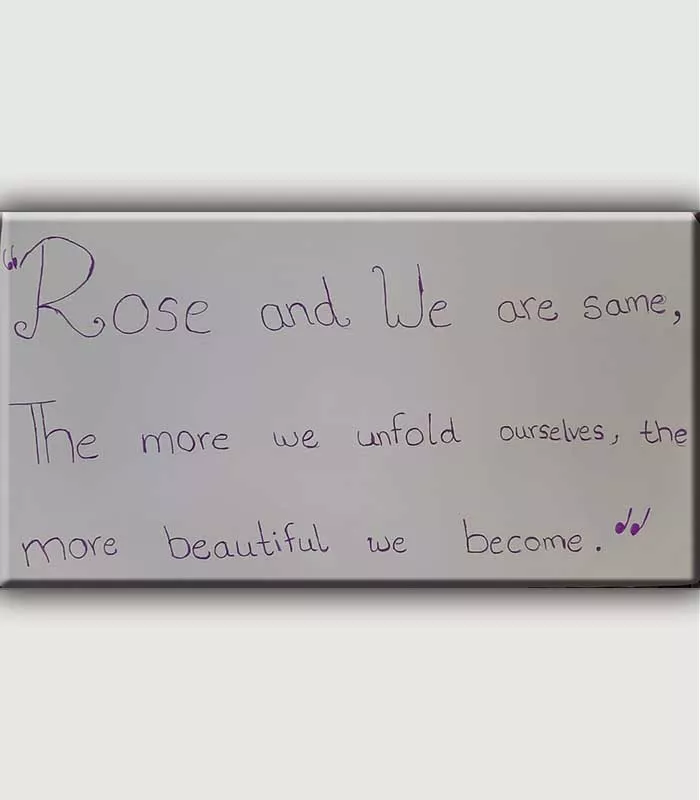 “Rose and We are same,
The more we unfold ourselves, the
more beautiful we become.”